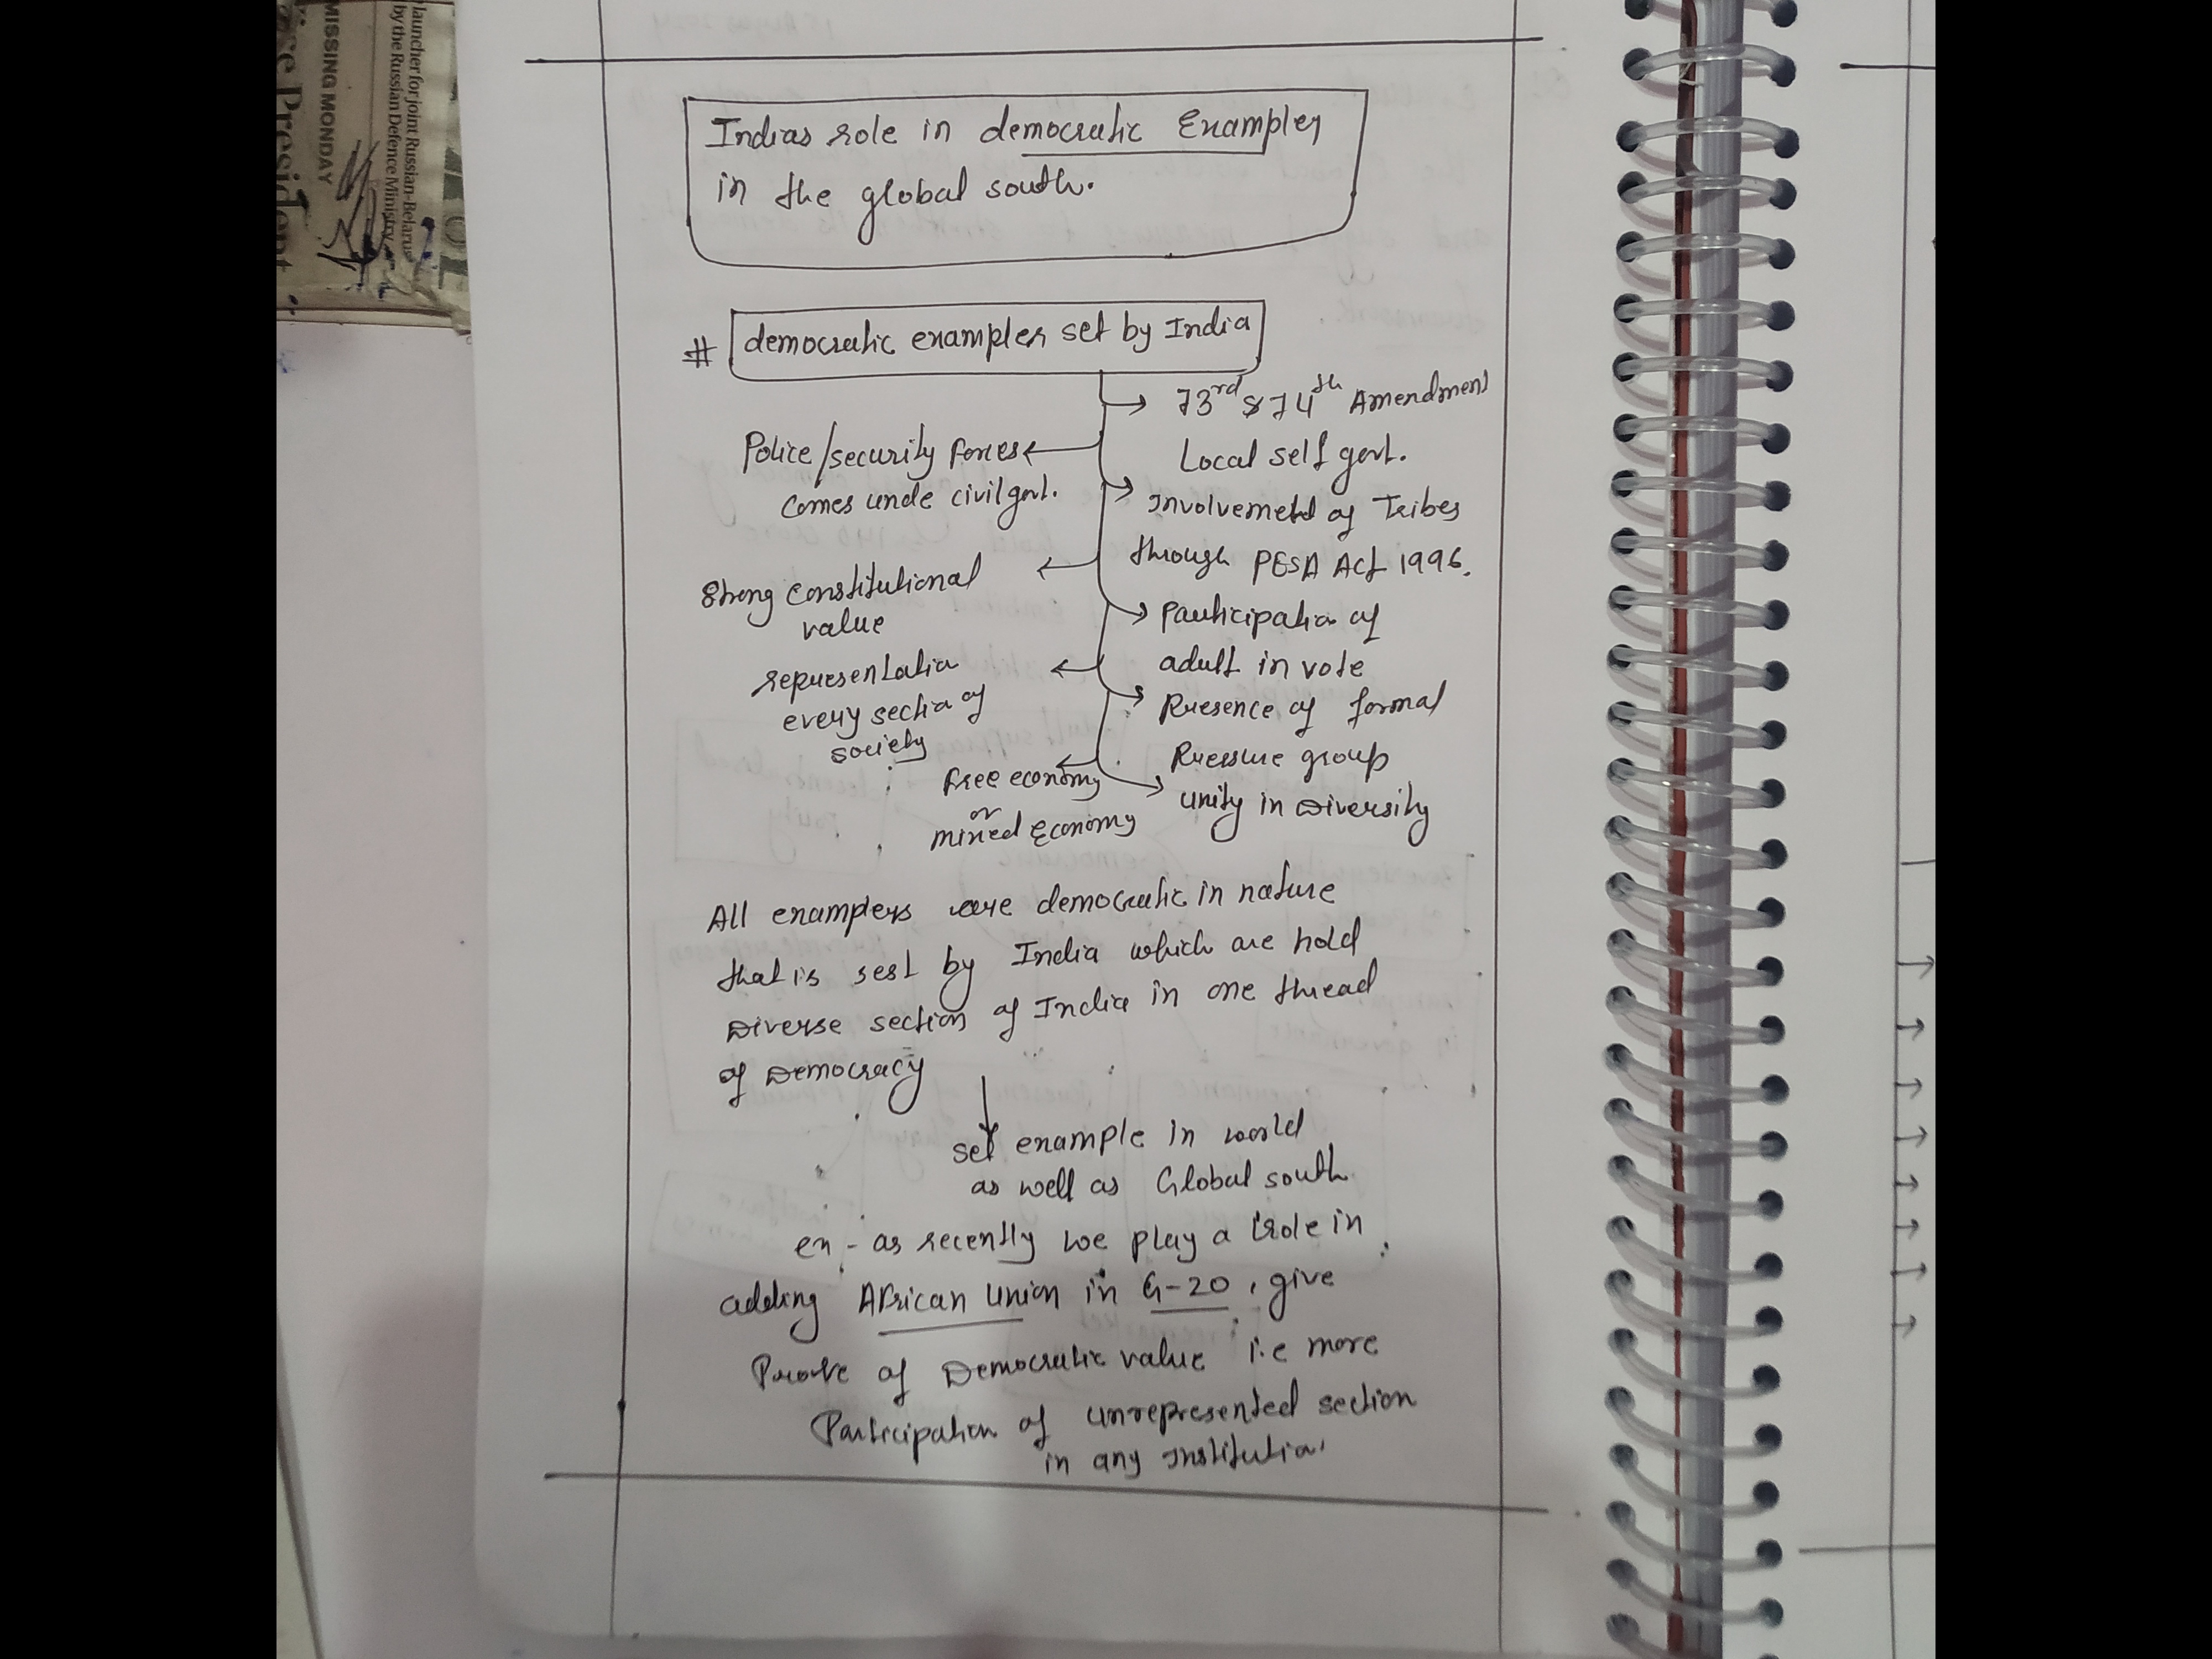 launcher for joint Russian-Belarus
by the Russian Defence Ministry
MISSING MONDAY
President
Indias role in democratic Examples
in the global south.
# democratic examples set by India
73rd & 74th Amendment
Local self govt.
Police/security forces
comes unde civil govt.
Involvement of Tribes
through PESA Act 1996.
Strong constitutional
value
Participation of
adult in vote
representation
every section of
society
Presence of formal
Pressure group
free economy
or
mixed Economy
unity in Diversity
All examples are democratic in nature
that is sest by India which are hold
Diverse section of India in one thread
of Democracy
set example in world
as well as Global south
ex - as recently we play a role in
adding African Union in G-20, give
Prove of Democratic value i.e more
Participation of unrepresented section
in any Institution